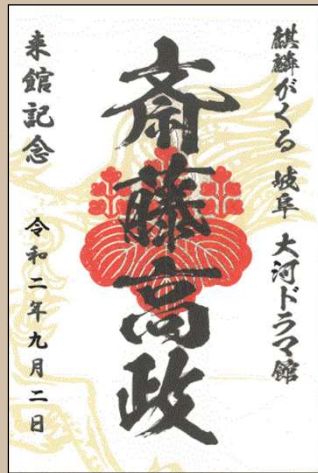 麒麟がくる 岐阜 大河ドラマ館
斎藤高政
来館記念
令和二年九月二日